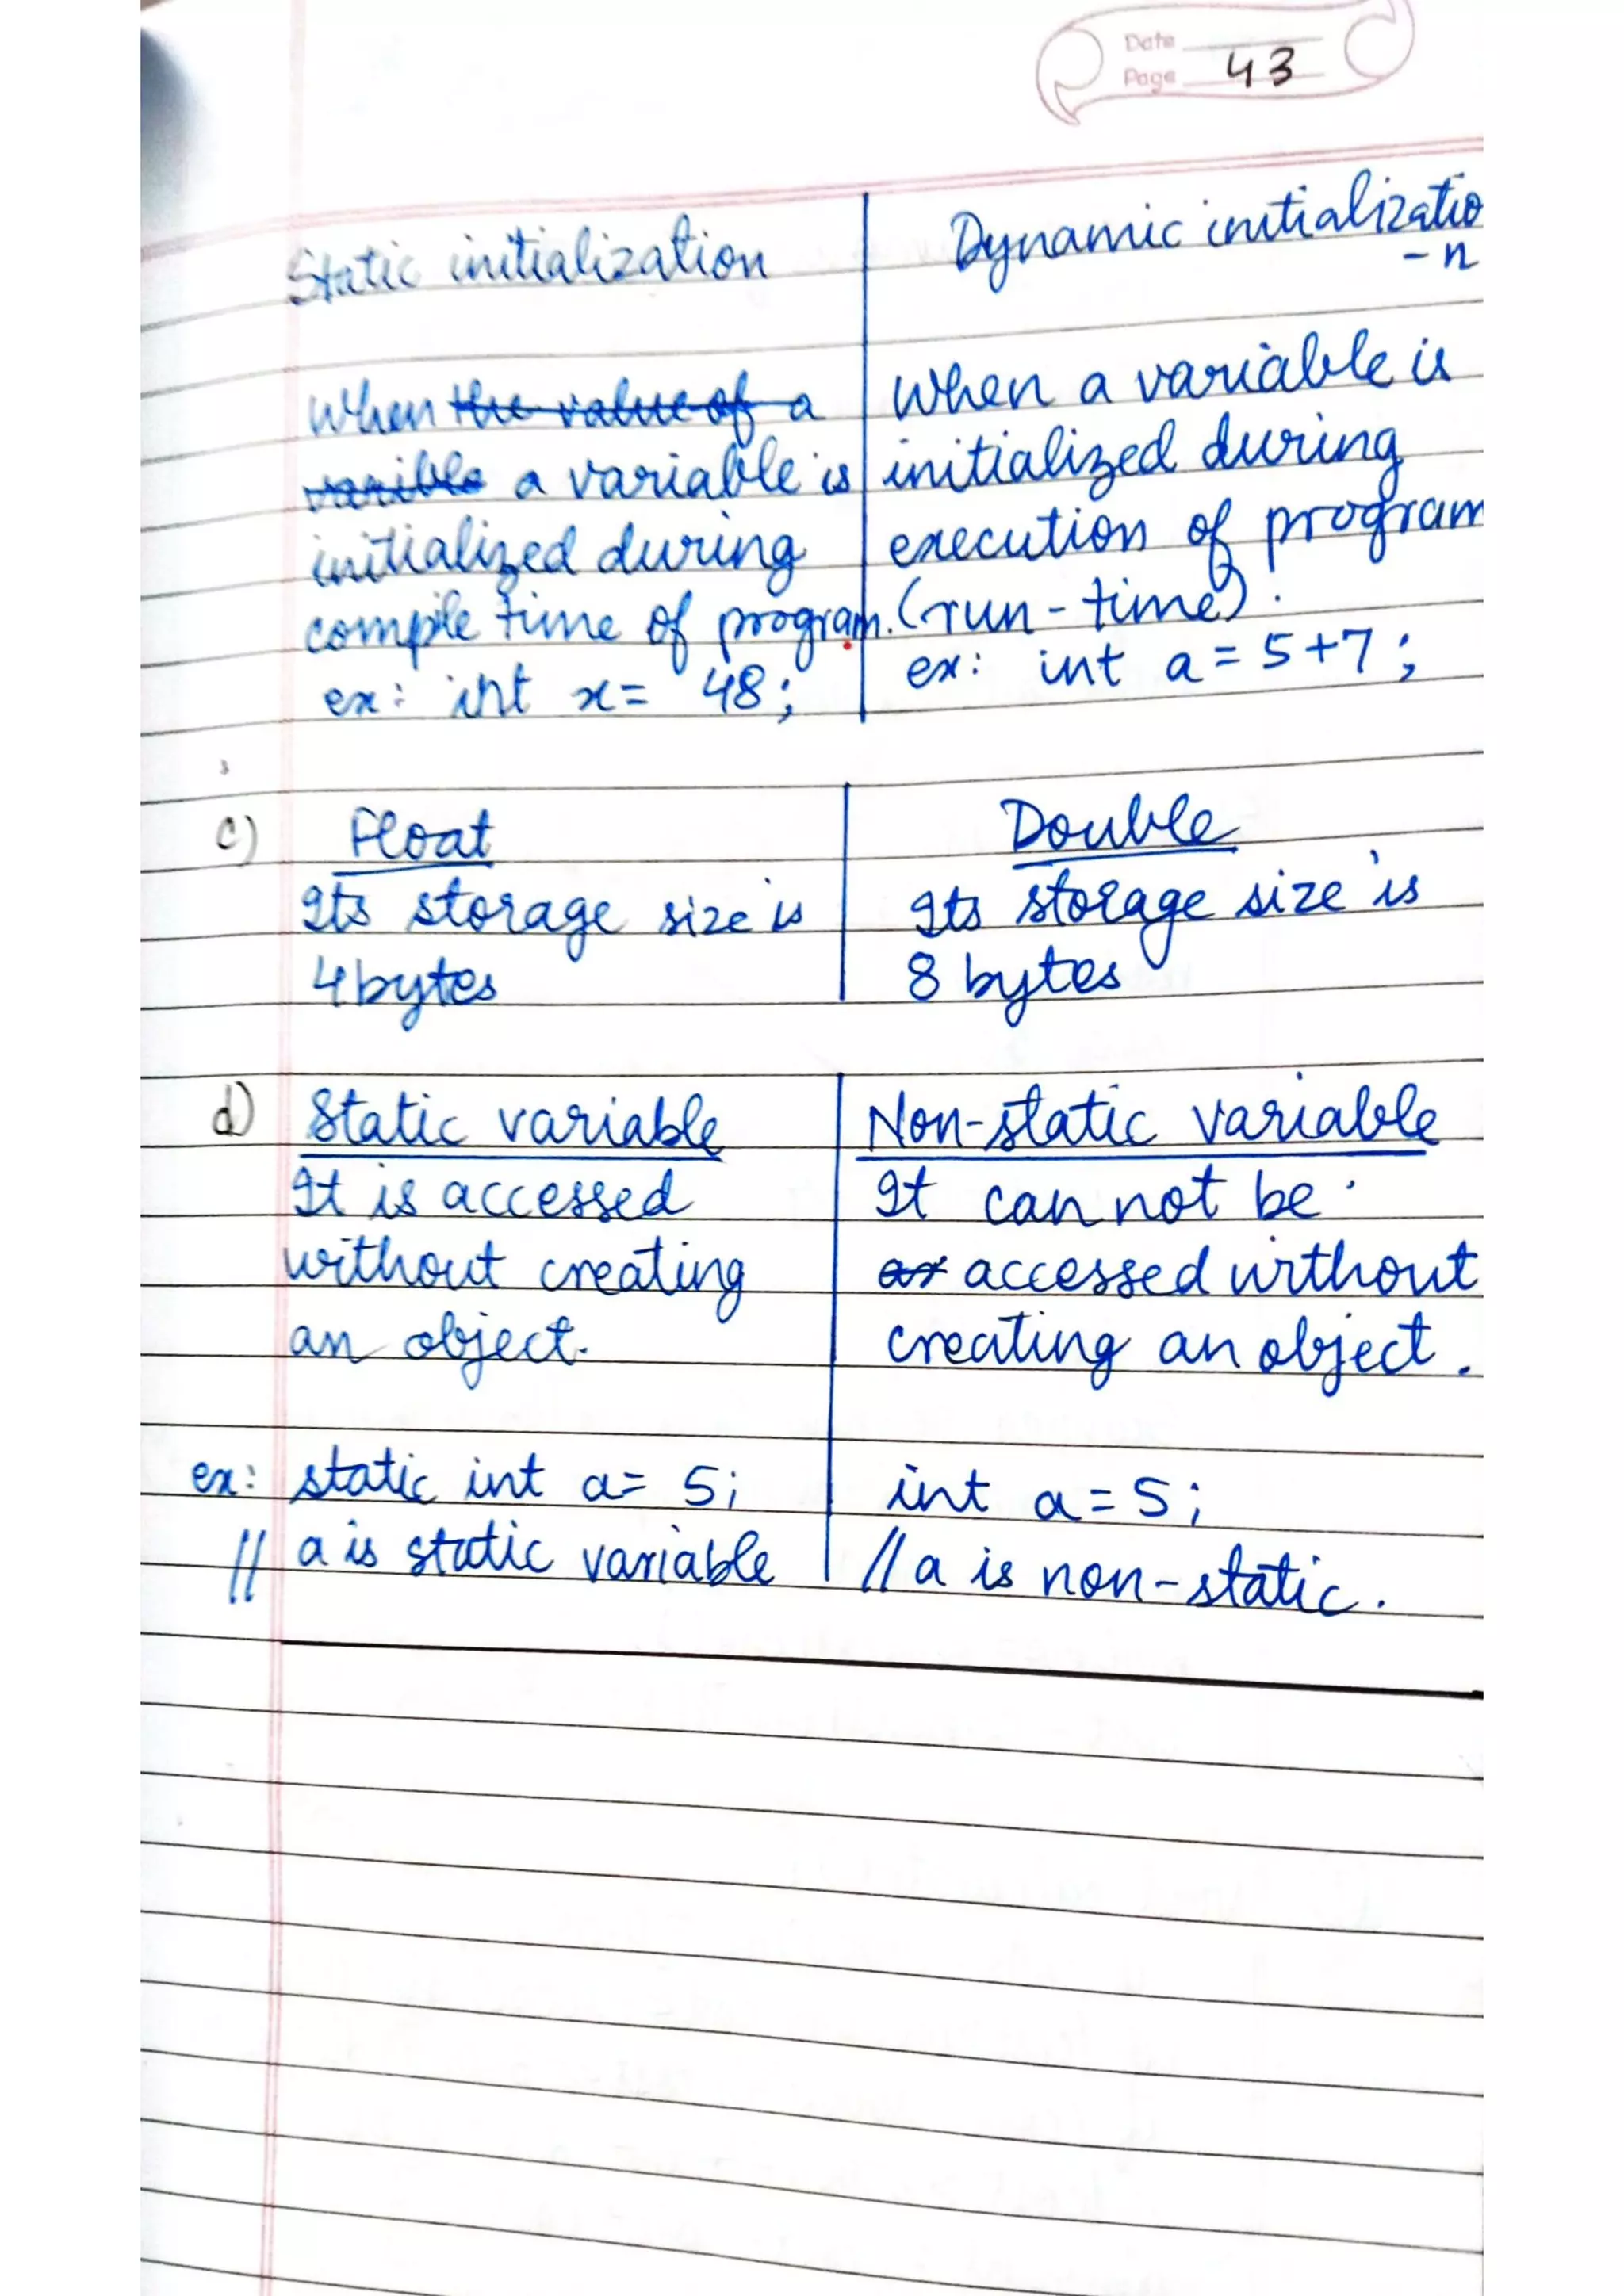 Date
Page 43
Static initialization
Dynamic initializatio
-n
When the value of a
varible a variable is
initialized during
compile time of program.
ex: int x = 48;
When a variable is
initialized during
execution of program
(run-time).
ex: int a = 5+7;
c) Float
Its storage size is
4 bytes
Double
Its storage size is
8 bytes
d) Static variable
It is accessed
without creating
an object.
ex: static int a = 5;
// a is static variable
Non-static variable
It can not be
accessed without
creating an object.
int a = 5;
// a is non-static.